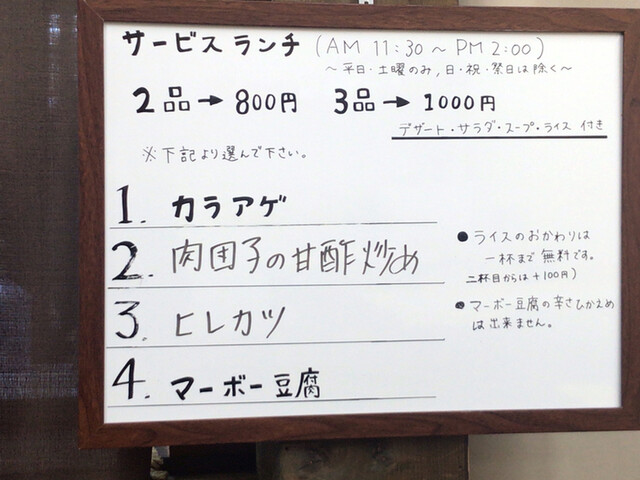 サービスランチ (AM 11:30 ~ PM 2:00)
~平日・土曜のみ, 日・祝・祭日は除く~
2品→800円 3品→1000円
デザート・サラダ・スープ・ライス 付き
※下記より選んで下さい。
1. カラアゲ
2. 肉団子の甘酢炒め
3. ヒレカツ
4. マーボー豆腐
●ライスのおかわりは
一杯まで無料です。
二杯目からは+100円)
●マーボー豆腐の辛さひかえめ
は出来ません。